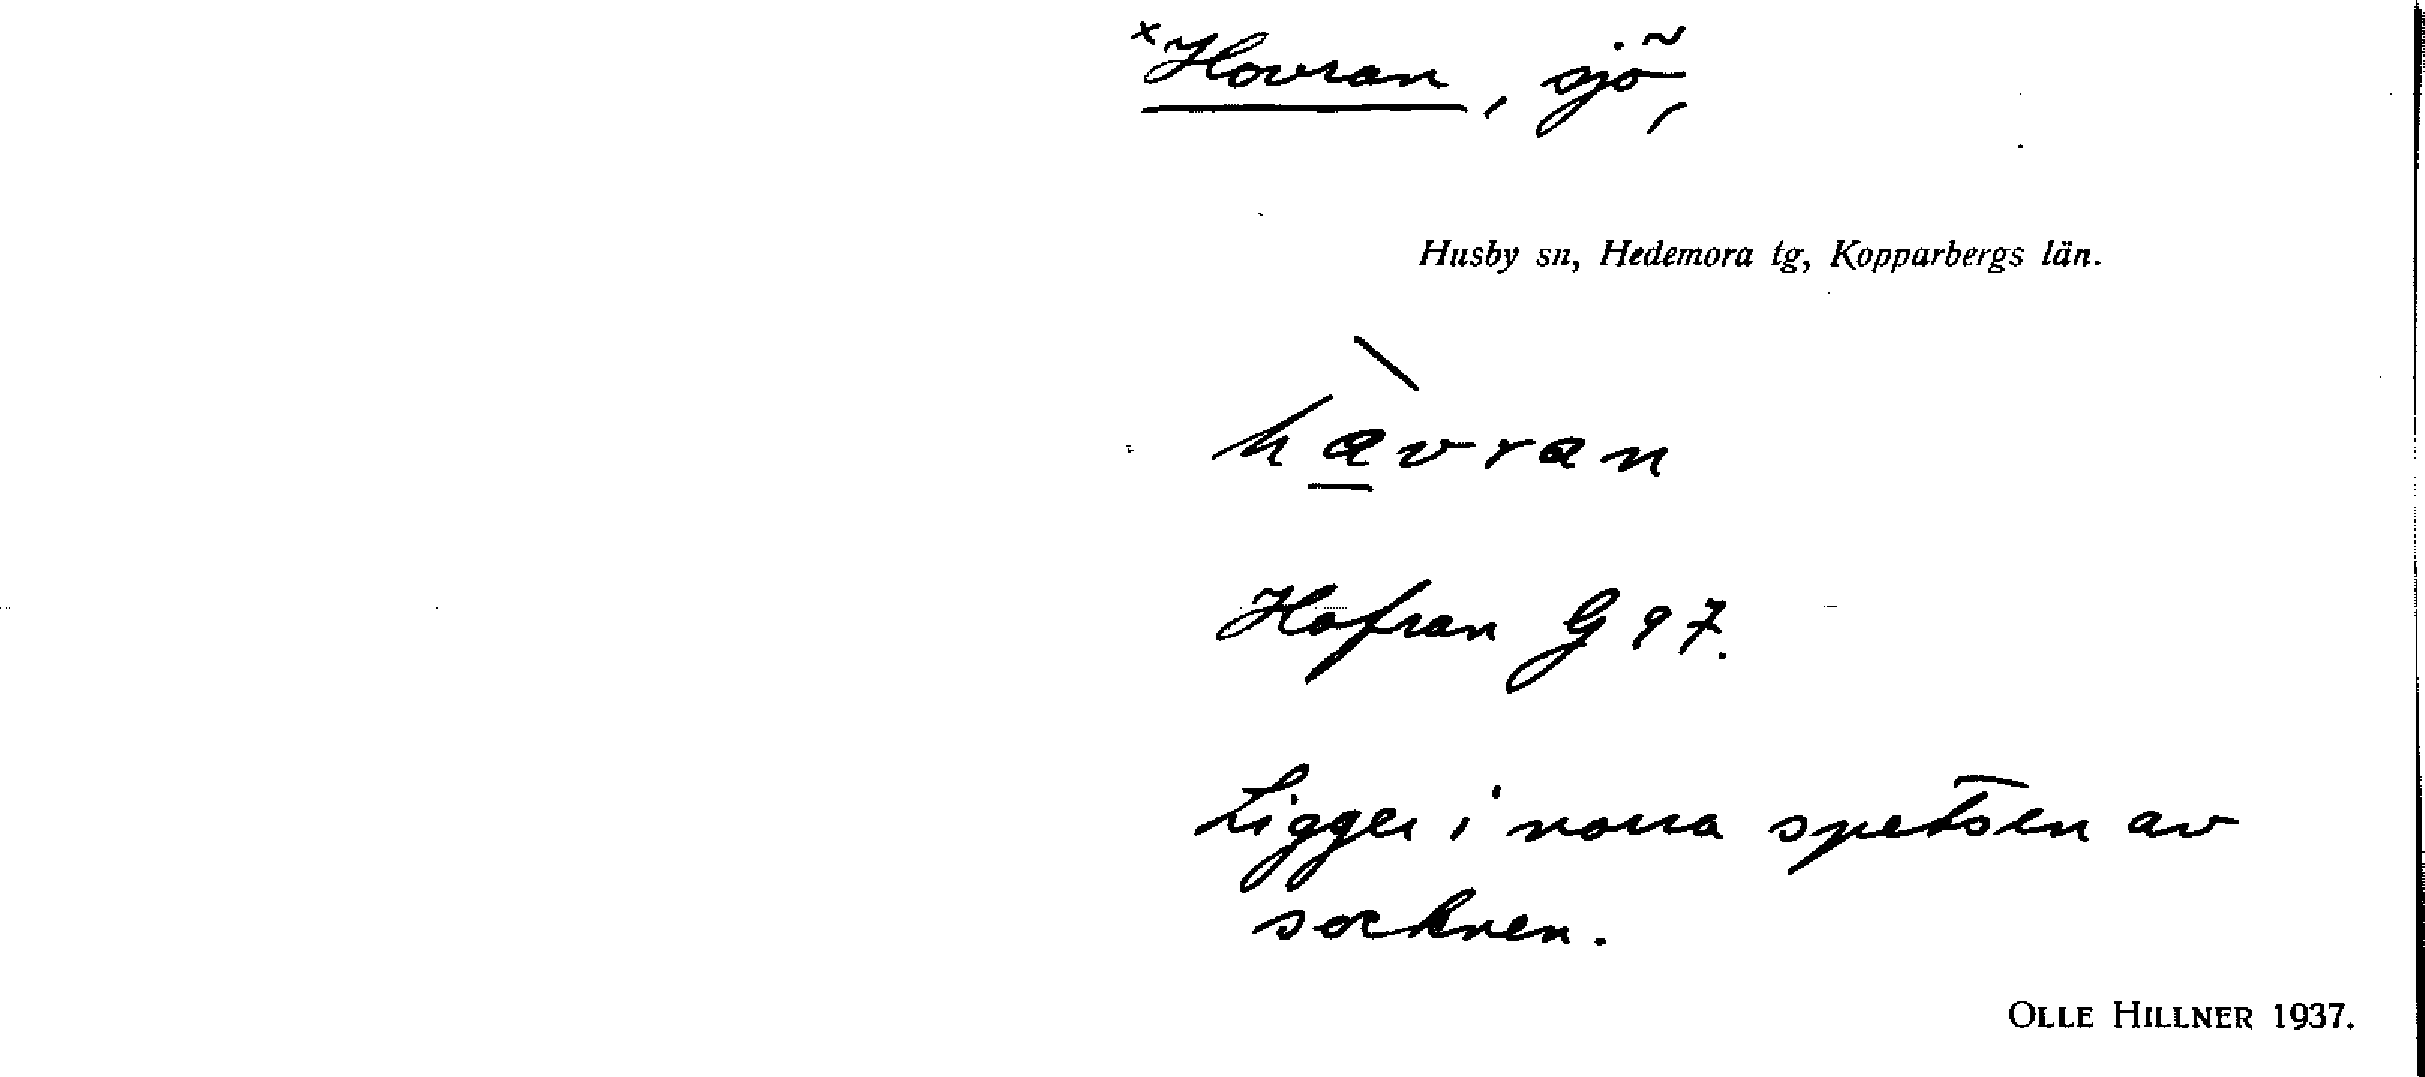 ×Hovran, sjö,
Husby sn, Hedemora tg, Kopparbergs län.
hàvran
Hofran G 97.
Ligger i norra spetsen av
socknen.
OLLE HILLNER 1937.